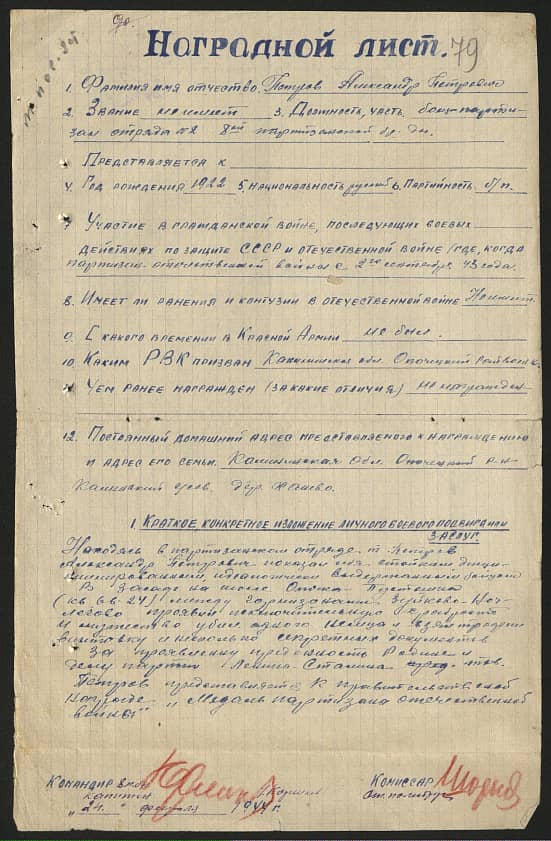 Наградной лист. 79
1. Фамилия имя отчество. Петров Александр Петрович
2. Звание не имеет 3. Должность, часть. боец парти-
зан отряда №2 8ой партизанской бр-ды.
Представляется к
4. Год рождения 1922 5. Национальность русский 6. Партийность б/п.
7. Участие в гражданской войне, последующих боевых
действиях по защите СССР и отечественной войне /где, когда
партизан отечественной войны с 2го сентября 43 года.
8. Имеет ли ранения и контузии в отечественной войне Не имеет.
9. С какого времени в Красной Армии не был.
10. Каким РВК призван Калининская обл. Опочецкий Райвоенк.
11 Чем ранее награжден (за какие отличия) не награжден
12. Постоянный домашний адрес представляемого к награждению
и адрес его семьи. Калининская обл. Опочецкий р-н
дер.
1. Краткое конкретное изложение личного боевого подвига или
заслуг.
Находясь в партизанском отряде т. Петров
Александр Петрович показал себя стойким дисци-
плинированным, идеологически выдержанным бойцом
В засаде на шоссе Опочка
(кв 6.6. 24) гарнизона
проявил исключительную храбрость
и мужество убил одного немца и взял трофеи
винтовку и несколько секретных документов
За проявленную преданность Родине и
делу партии Ленина-Сталина тов.
Петров представляется к правительственной
награде „Медаль партизана отечественной
войны"
Командир 8 капитан Комиссар
„24" февраля 1944 г. Ст. политрук